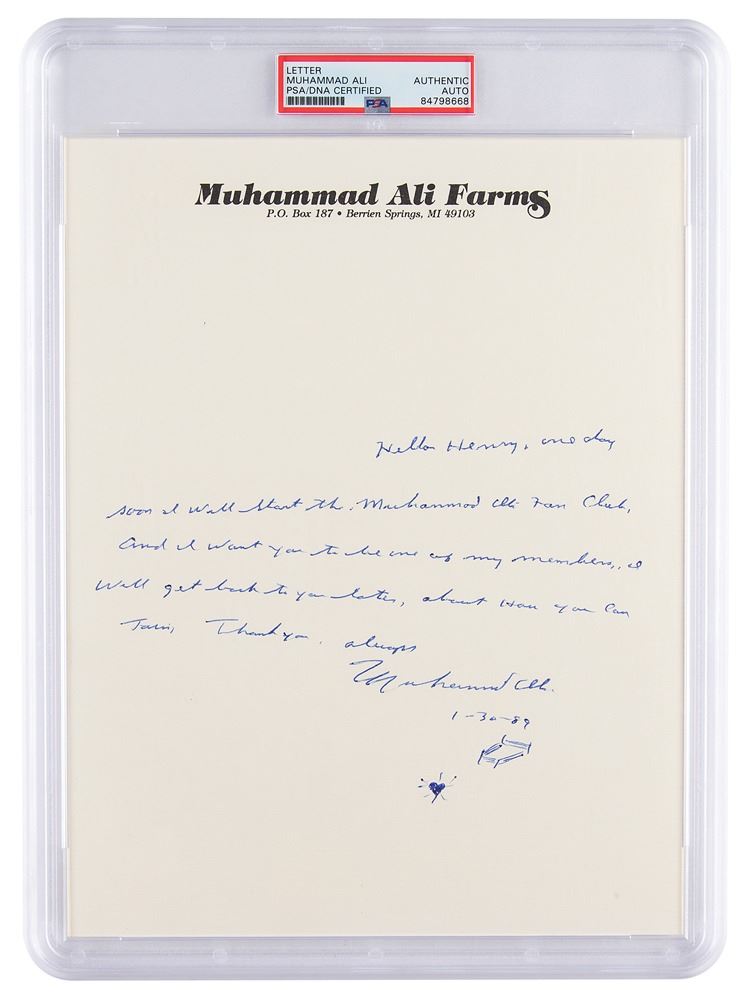 LETTER
MUHAMMAD ALI AUTHENTIC
PSA/DNA CERTIFIED AUTO
PSA 84798668
Muhammad Ali Farms
P.O. Box 187 • Berrien Springs, MI 49103
Hello Henry, one day
soon I will start the. Muhammad Ali Fan Club,
And I want you to be one of my members,. I
will get back to you later, about How you Can
Join, Thank you. always
Muhammad Ali.
1-30-89